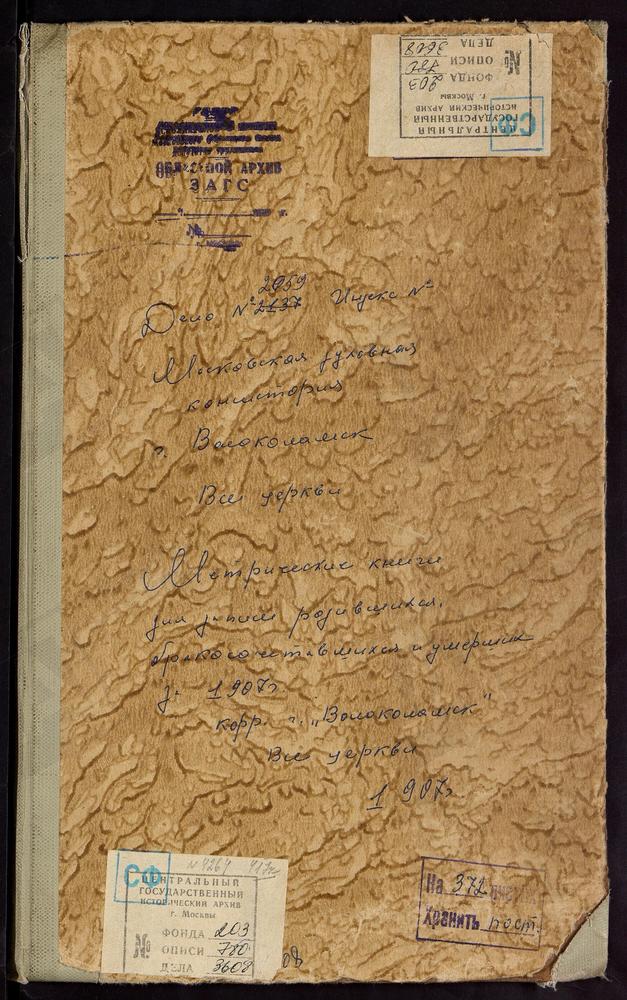 ЦЕНТРАЛЬНЫЙ
ГОСУДАРСТВЕННЫЙ
ИСТОРИЧЕСКИЙ АРХИВ
г. Москвы
№ ФОНДА 203
ОПИСИ 780
ДЕЛА 3608
СФ
ОБЛАСТНОЙ АРХИВ
ЗАГС
№
2059
Дело № 2137 Индекс №
Московская духовная
консистория
г. Волоколамск
Все церкви
Метрические книги
для записи родившихся,
бракосочетавшихся и умерших
за 1907 г.
корр. г. „Волоколамск"
Все церкви
1907 г.
СФ
ЦЕНТРАЛЬНЫЙ
ГОСУДАРСТВЕННЫЙ
ИСТОРИЧЕСКИЙ АРХИВ
г. Москвы
№ ФОНДА 203
ОПИСИ 780
ДЕЛА 3608
На 372
Хранить пост.